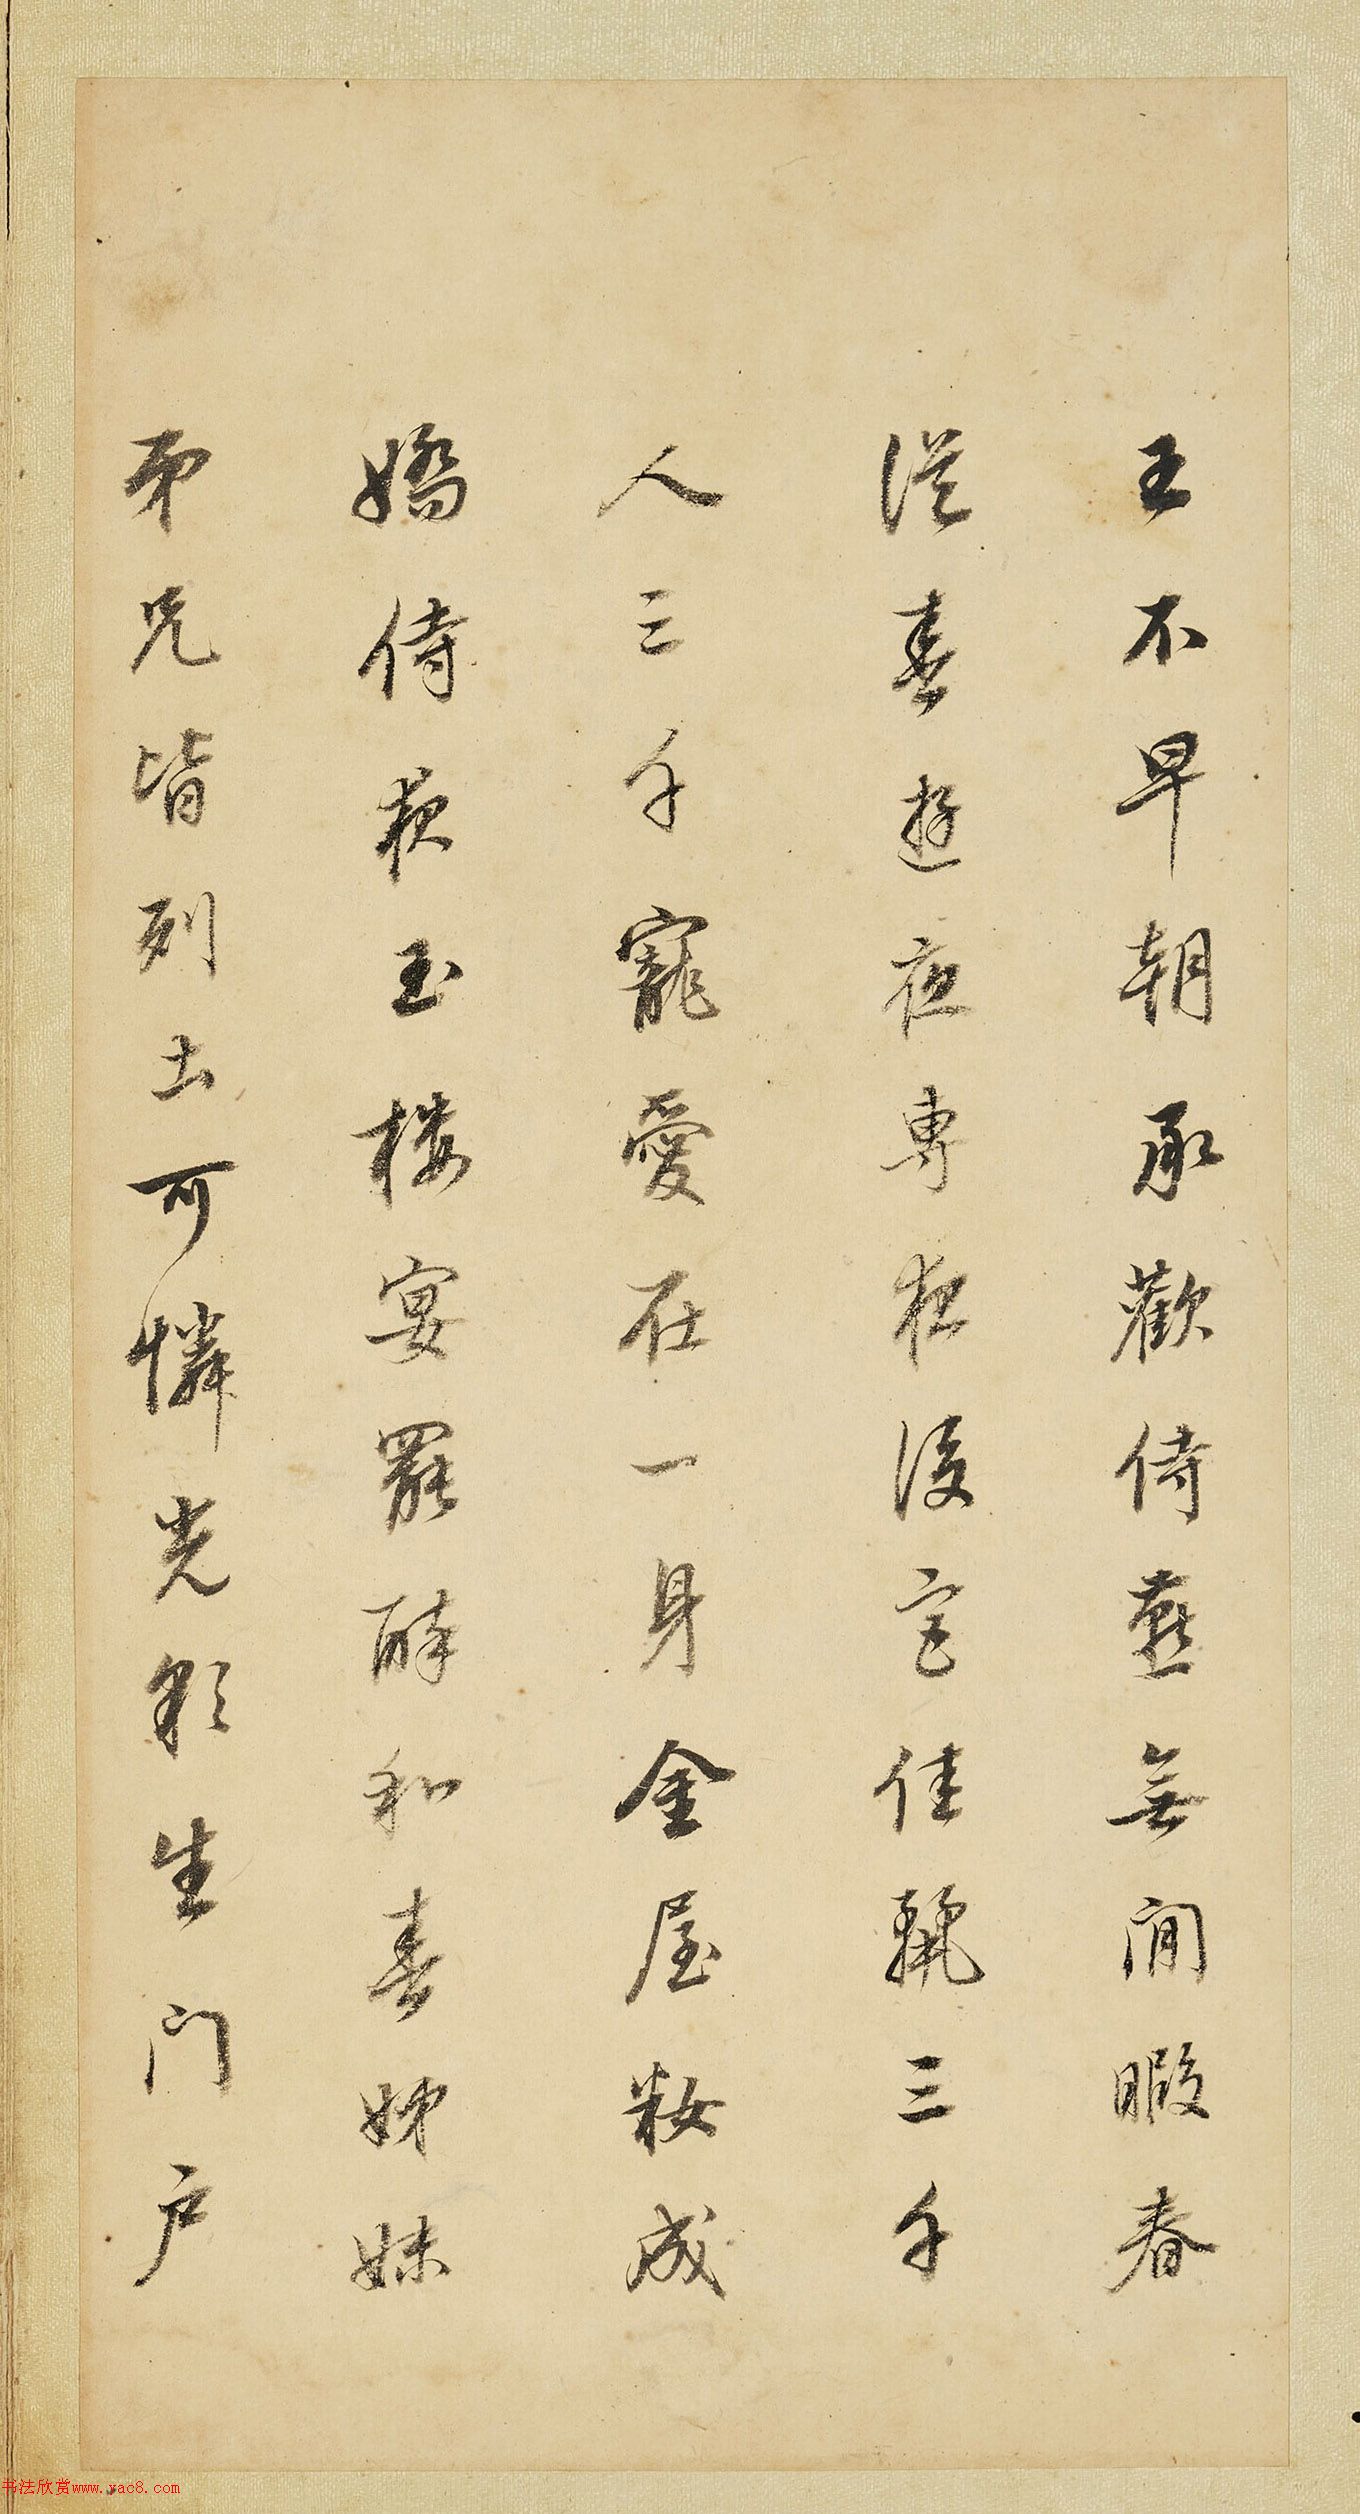 王不早朝承歡侍燕無閒暇春
從春遊夜專夜後宮佳麗三千
人三千寵愛在一身金屋粧成
嬌侍夜玉樓宴罷醉和春姊妹
弟兄皆列土可憐光彩生門戶
书法欣赏www.yac8.com